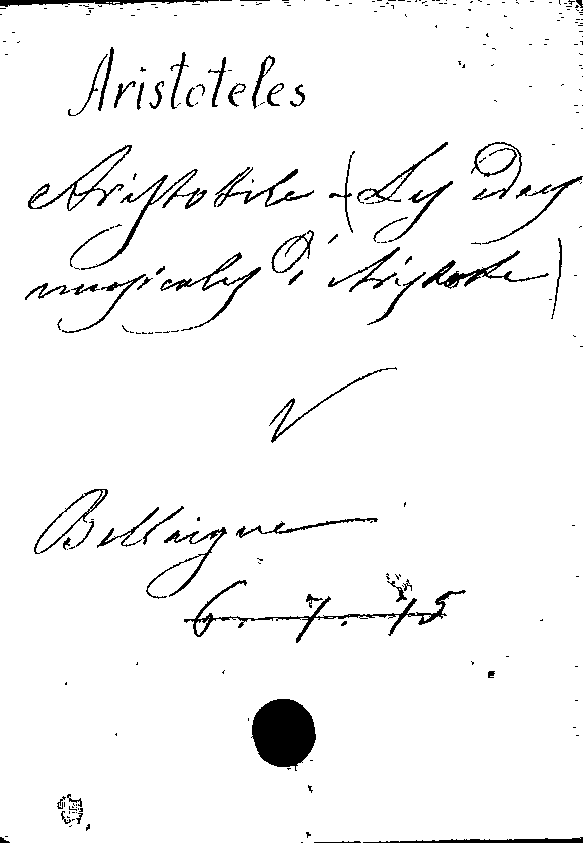 Aristoteles
Aristotile - (Les idées
musicales d'Aristote)
V
Bellaigue
6. 7. 15